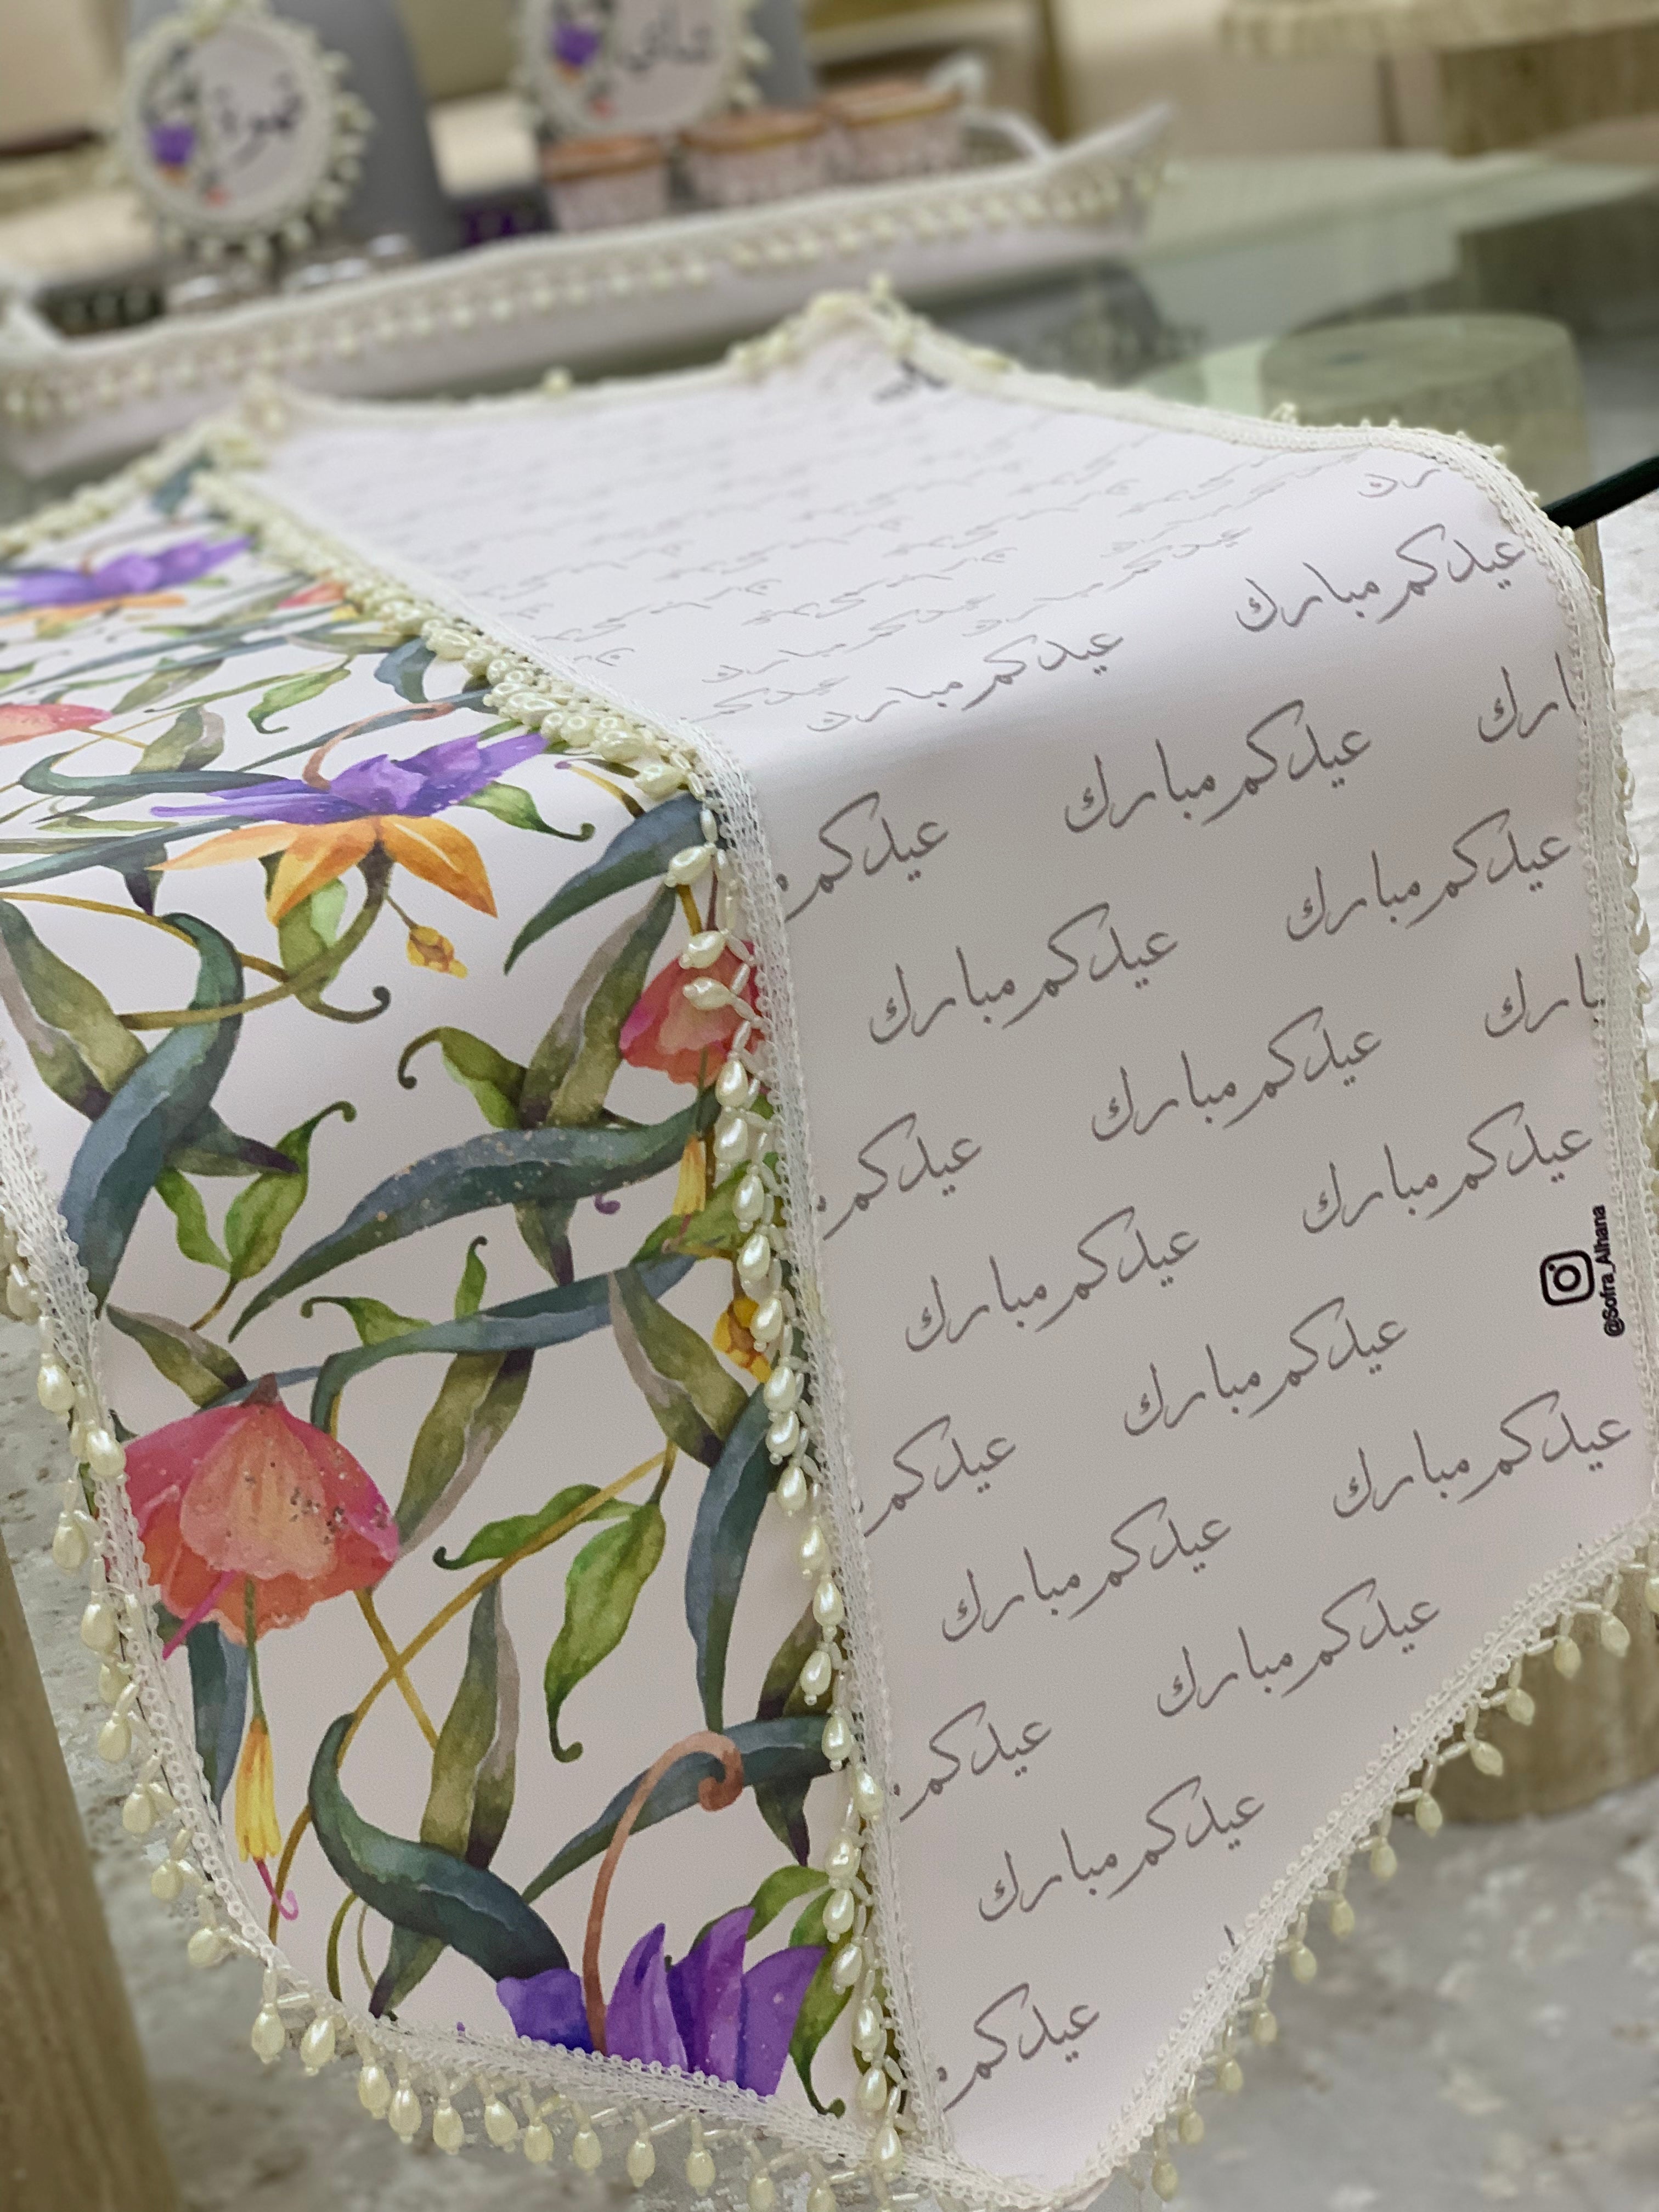 قهوة
شاي
عيدكم مبارك
عيدكم مبارك
ارك
عيدكم مبارك
عيدكم
عيدكم مبارك
عيدكم مبارك
ارك
عيدكم مبارك
عيدكم
عيدكم مبارك
عيدكم مبارك
عيدكم مبارك
عيدكم
عيدكم مبارك
عيدكم مبارك
عيدكم مبارك
عيدكم
عيدكم مبارك
عيدكم
@Sofra_Alhana